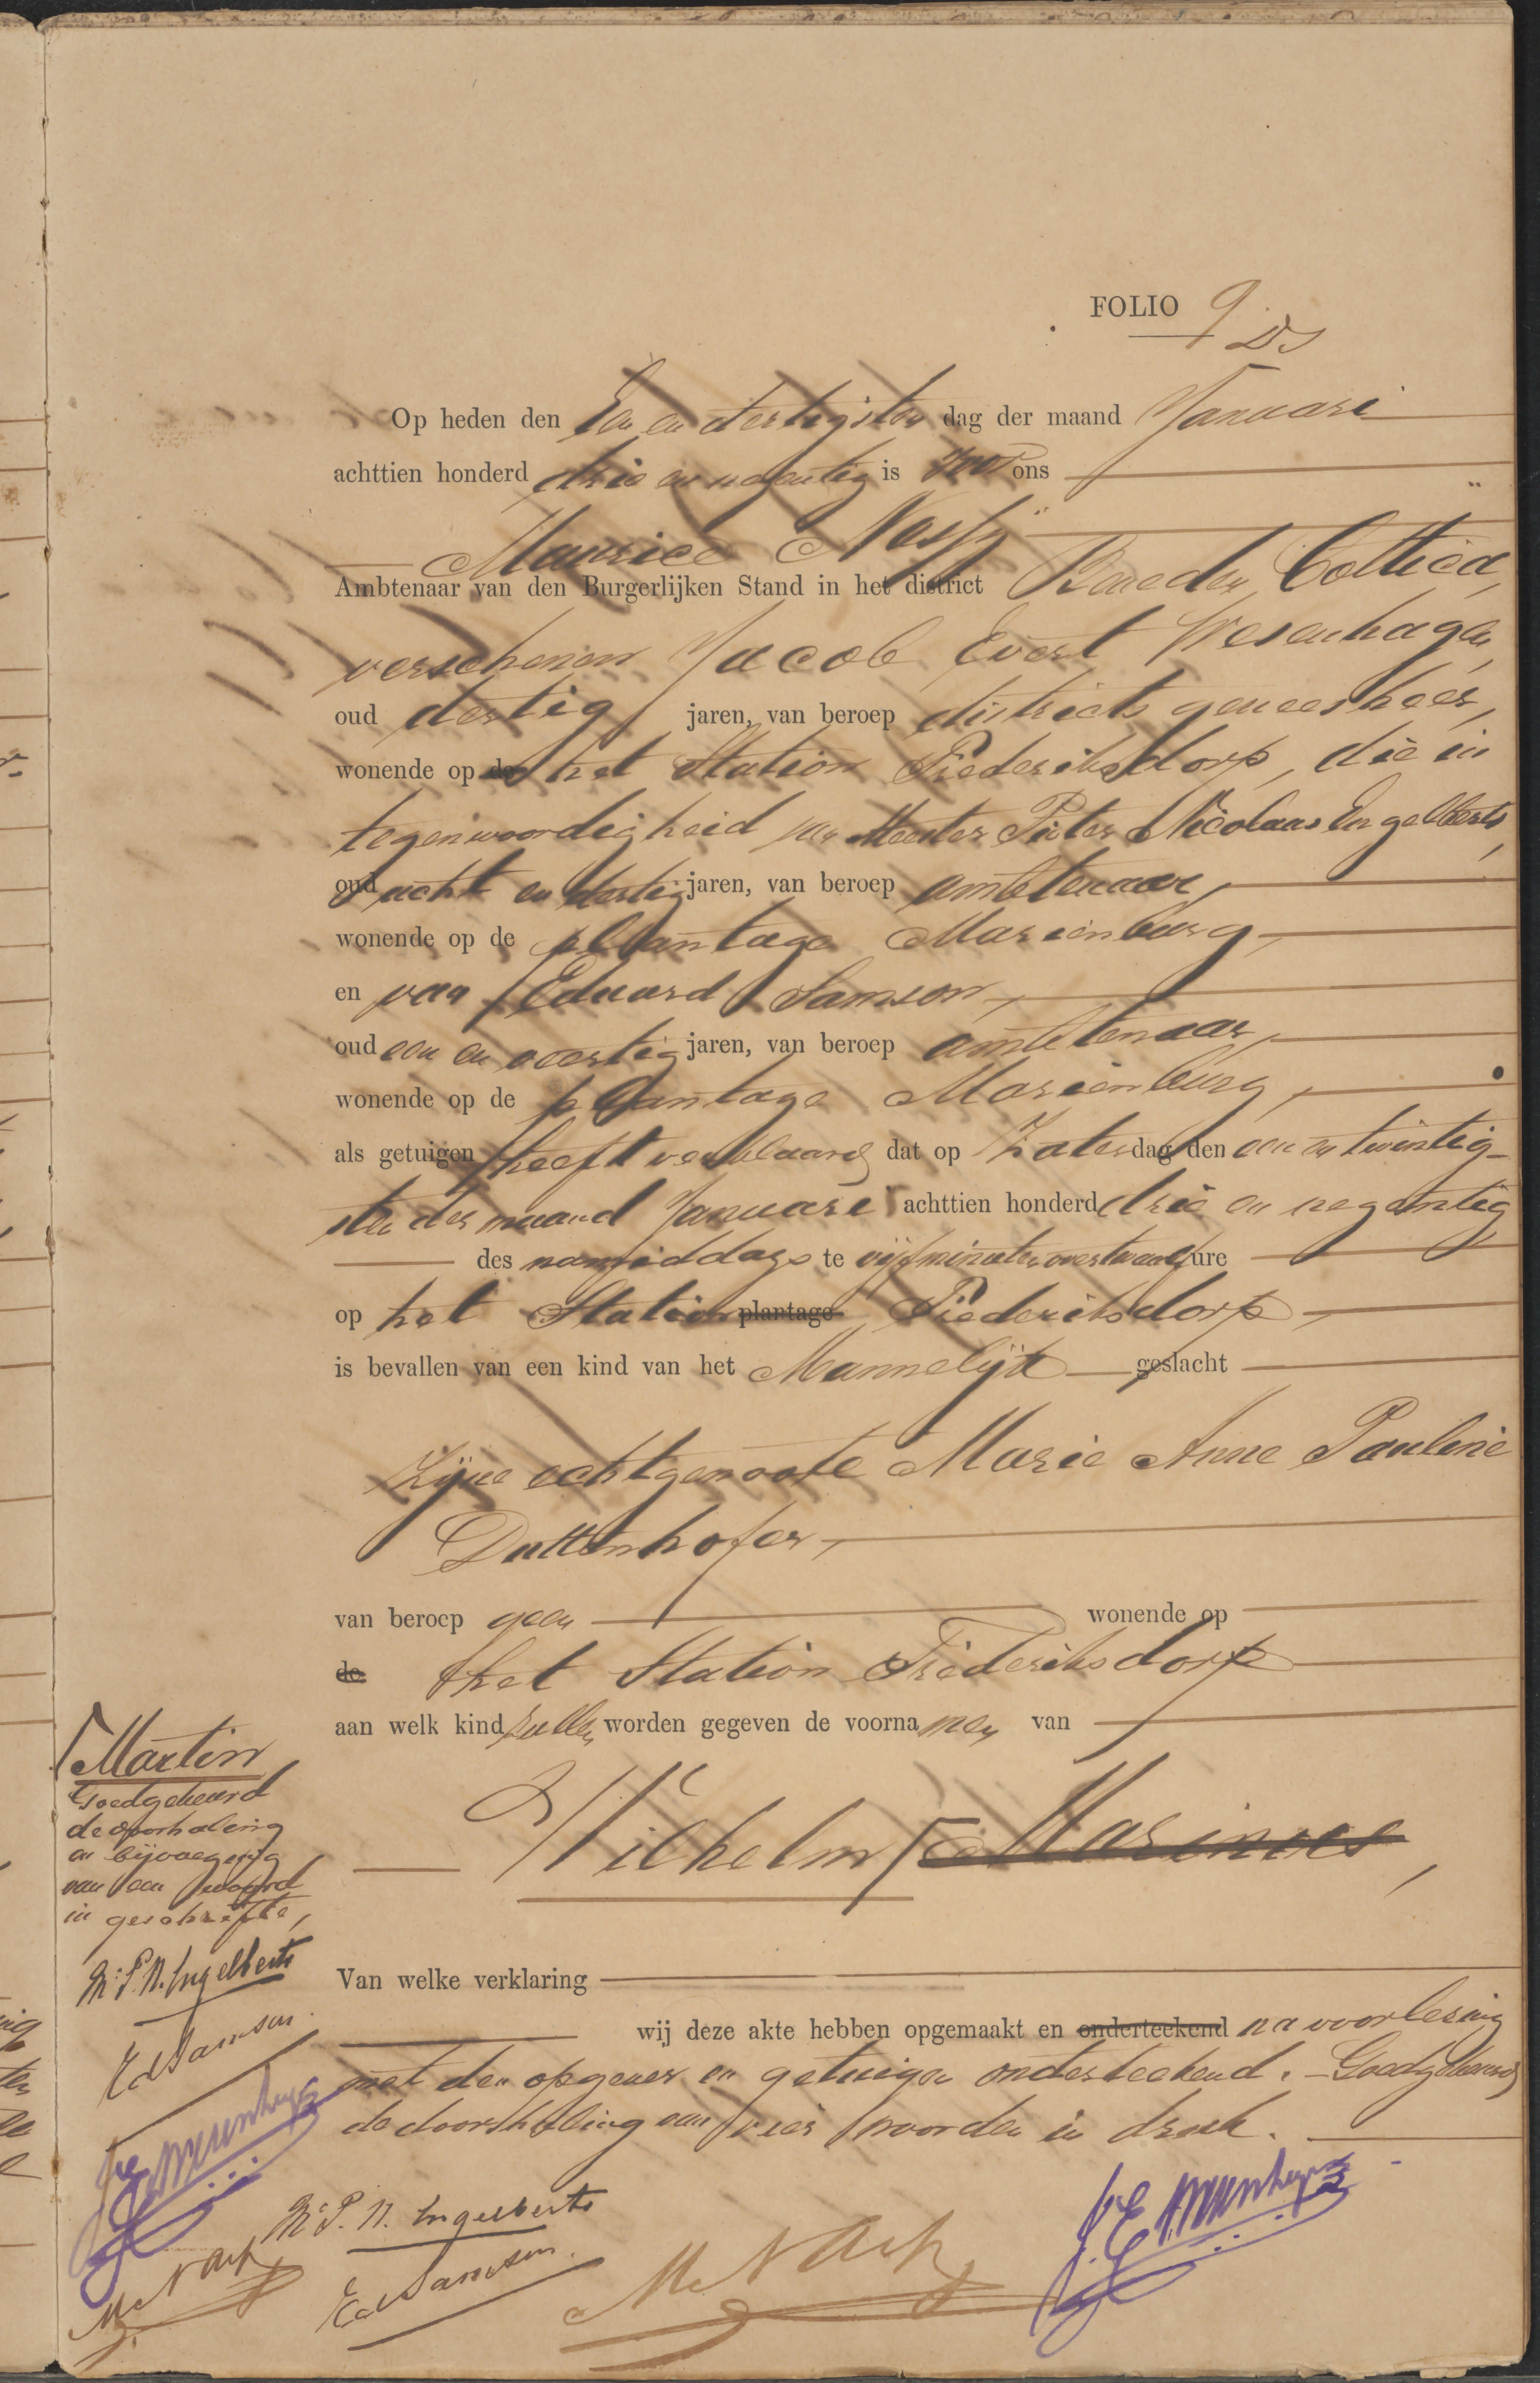 FOLIO 9
Op heden den Een en dertigsten dag der maand Januari
achttien honderd drie en negentig is voor ons
Maurice Nassÿ
Ambtenaar van den Burgerlijken Stand in het district Beneden Cottica,
verschenen Jacob Evert Wesenhagen,
oud dertig jaren, van beroep districts geneesheer,
wonende op de het Station Frederiksdorp, die in
tegenwoordigheid van Meester Pieter Nicolaas Engelberts,
oud acht en dertig jaren, van beroep ambtenaar,
wonende op de plantage Mariënburg,
en van Eduard Samson,
oud een en veertig jaren, van beroep ambtenaar,
wonende op de plantage Mariënburg,
als getuigen heeft verklaard dat op Zaterdag den een en twintig-
sten der maand Januari achttien honderd drie en negentig
des namiddags te vijf minuten over twaalf ure
op het Station plantage Frederiksdorp
is bevallen van een kind van het Mannelijk geslacht
zijne echtgenoote Marie Anne Pauline
Duttenhofer,
van beroep geen wonende op
de het Station Frederiksdorp
aan welk kind zullen worden gegeven de voornamen van
Wilhelm Marinus,
Martin
Goedgekeurd
de doorhaling
en bijvoeging
van een woord
in geschrifte,
Mr. P. N. Engelberts
Ed Samson.
Van welke verklaring
wij deze akte hebben opgemaakt en onderteekend na voorlezing
met den opgever en getuigen onderteekend. - Goedgekeurd
de doorhaling van vier woorden in druk.
J. E. Wesenhagen
Mr. P. N. Engelberts
Ed Samson.
M. Nassÿ
J. E. Wesenhagen
M. Nassÿ